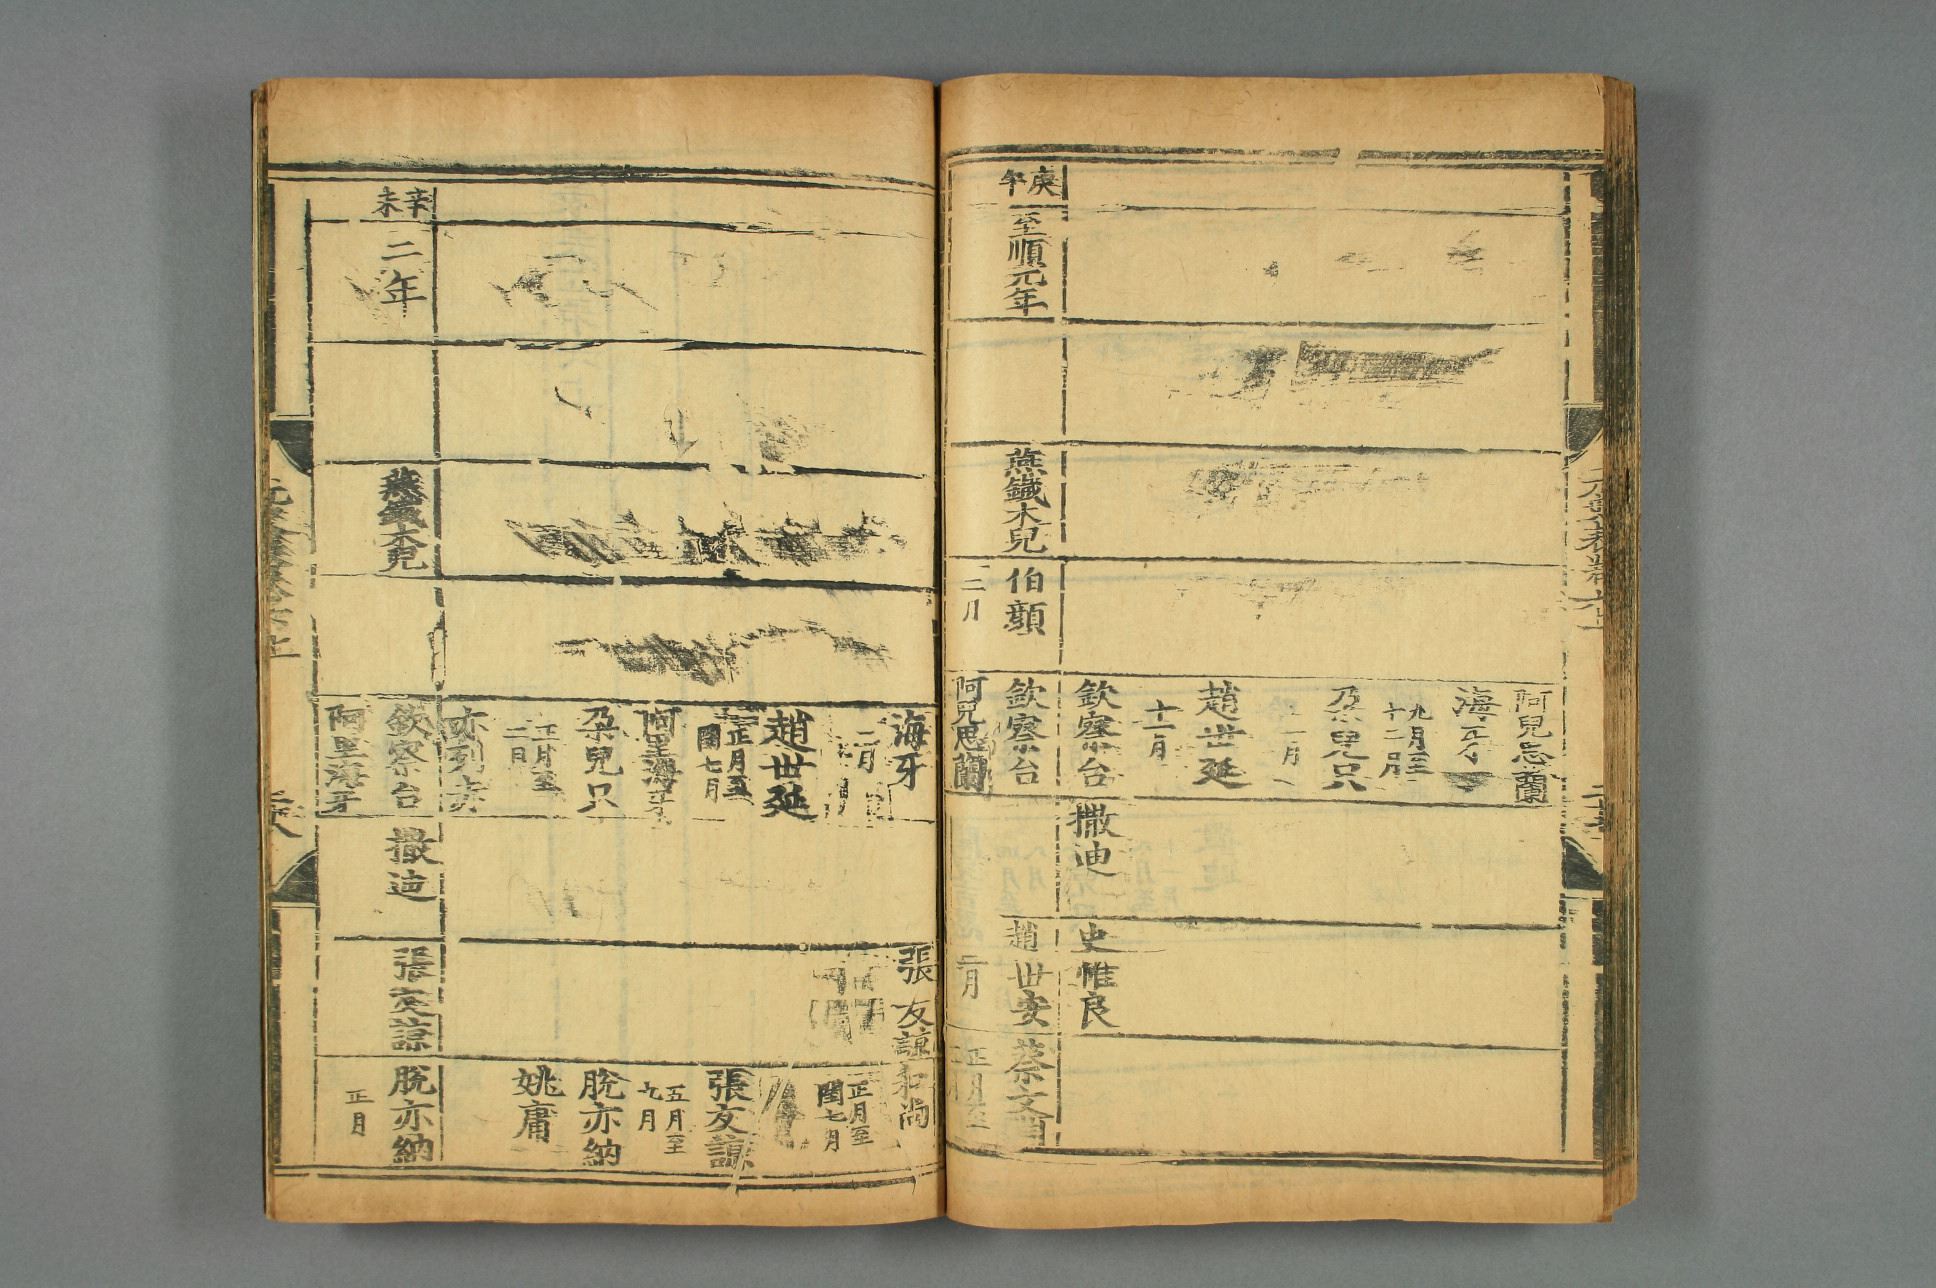 阿兒忘蘭
海牙
九月至
十二月
朶兒只
月
趙世延
十一月
欽察台
撒迪
史惟良
庚午
至順元年
燕鐵木兒
伯顏
欽察台
趙世安
蔡文淵
二月
阿兒思蘭
二月
正月至
海牙
張友諒
和尚
二月
趙世延
正月至
閏七月
正月至
閏七月
阿里海牙
張友諒
朶兒只
五月至
九月
脫亦納
正月至
二月
姚庸
亦列赤
辛未
二年
燕鐵木兒
欽察台
撒迪
張友諒
脫亦納
阿里海牙
正月